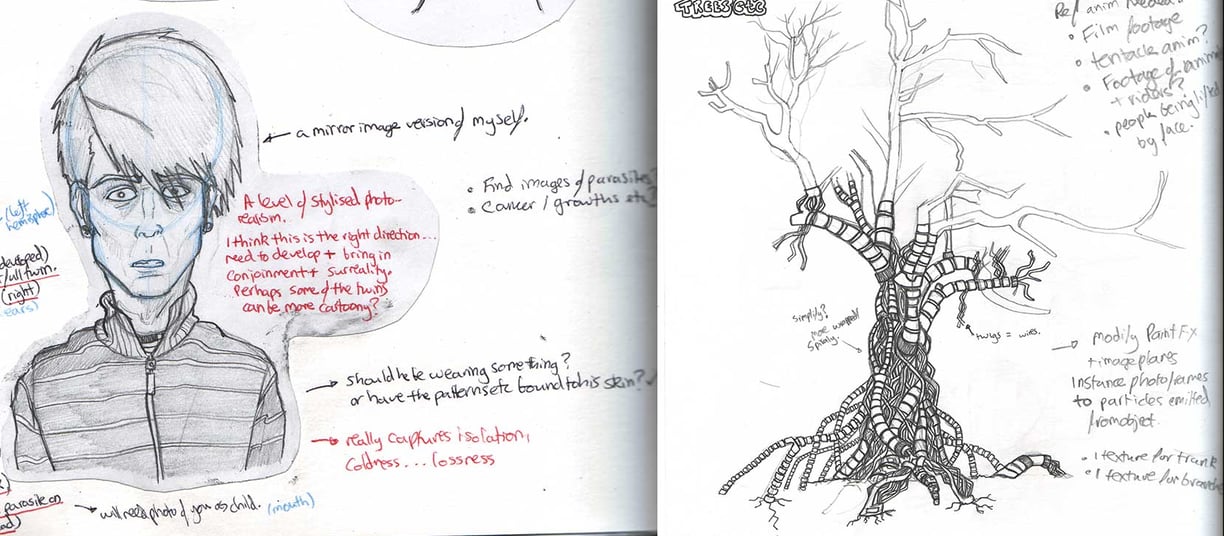 a mirror image version of myself.
• Find images of parasites?
• Cancer / growths etc?
A level of stylised photo-
realism.
I think this is the right direction...
need to develop + bring in
conjoinment + surreality.
Perhaps some of the twins
can be more cartoony?
(left
hemisphere)
developed)
twin.
(right)
ears)
should he be wearing something?
or have the patterns etc bound to his skin?
really captures isolation,
coldness... lossness
parasite on
will need photo of you as child. (mouth)
TREES etc
Ref anim needed?
• Film footage
• tentacle anim?
• Footage of
+ riders?
• people being
by face.
simplify?
more wrapped
spirally.
twigs = wires.
modify Paint FX
+ image planes
Instance photo frames
to particles emitted
from object.
• 1 texture for trunk
• 1 texture for branches